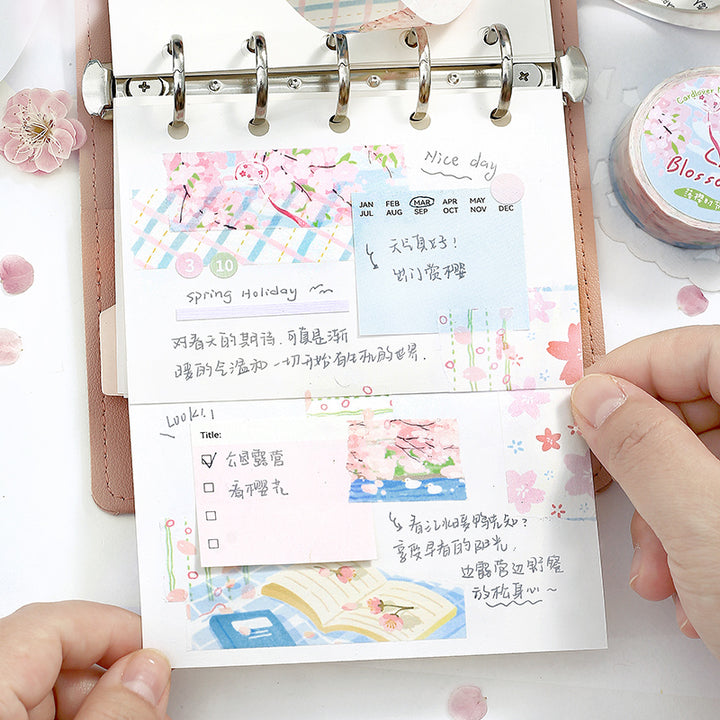 Nice day
JAN FEB MAR APR MAY
JUL AUG SEP OCT NOV DEC
天气真好!
出门赏樱
3 10
Spring Holiday
对春天的期待,可真是渐
暖的气温和一切开始有生机的世界.
Look!!
Title:
公园露营
看樱花
春江水暖鸭先知?
享受早春的阳光,
边露营边野餐
放松身心~
Cardlover
Blosso